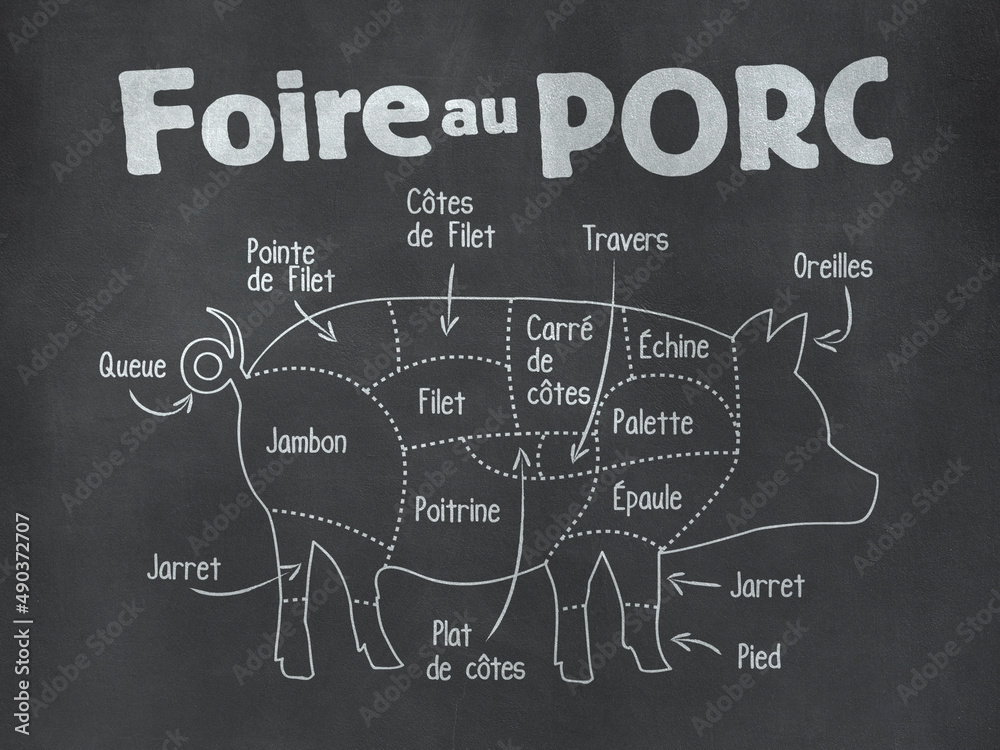 Foire au PORC
Côtes
de Filet
Pointe
de Filet
Travers
Oreilles
Carré
de
côtes
Échine
Queue
Filet
Palette
Jambon
Poitrine
Épaule
Jarret
Jarret
Plat
de côtes
Pied
Adobe Stock | #490372707